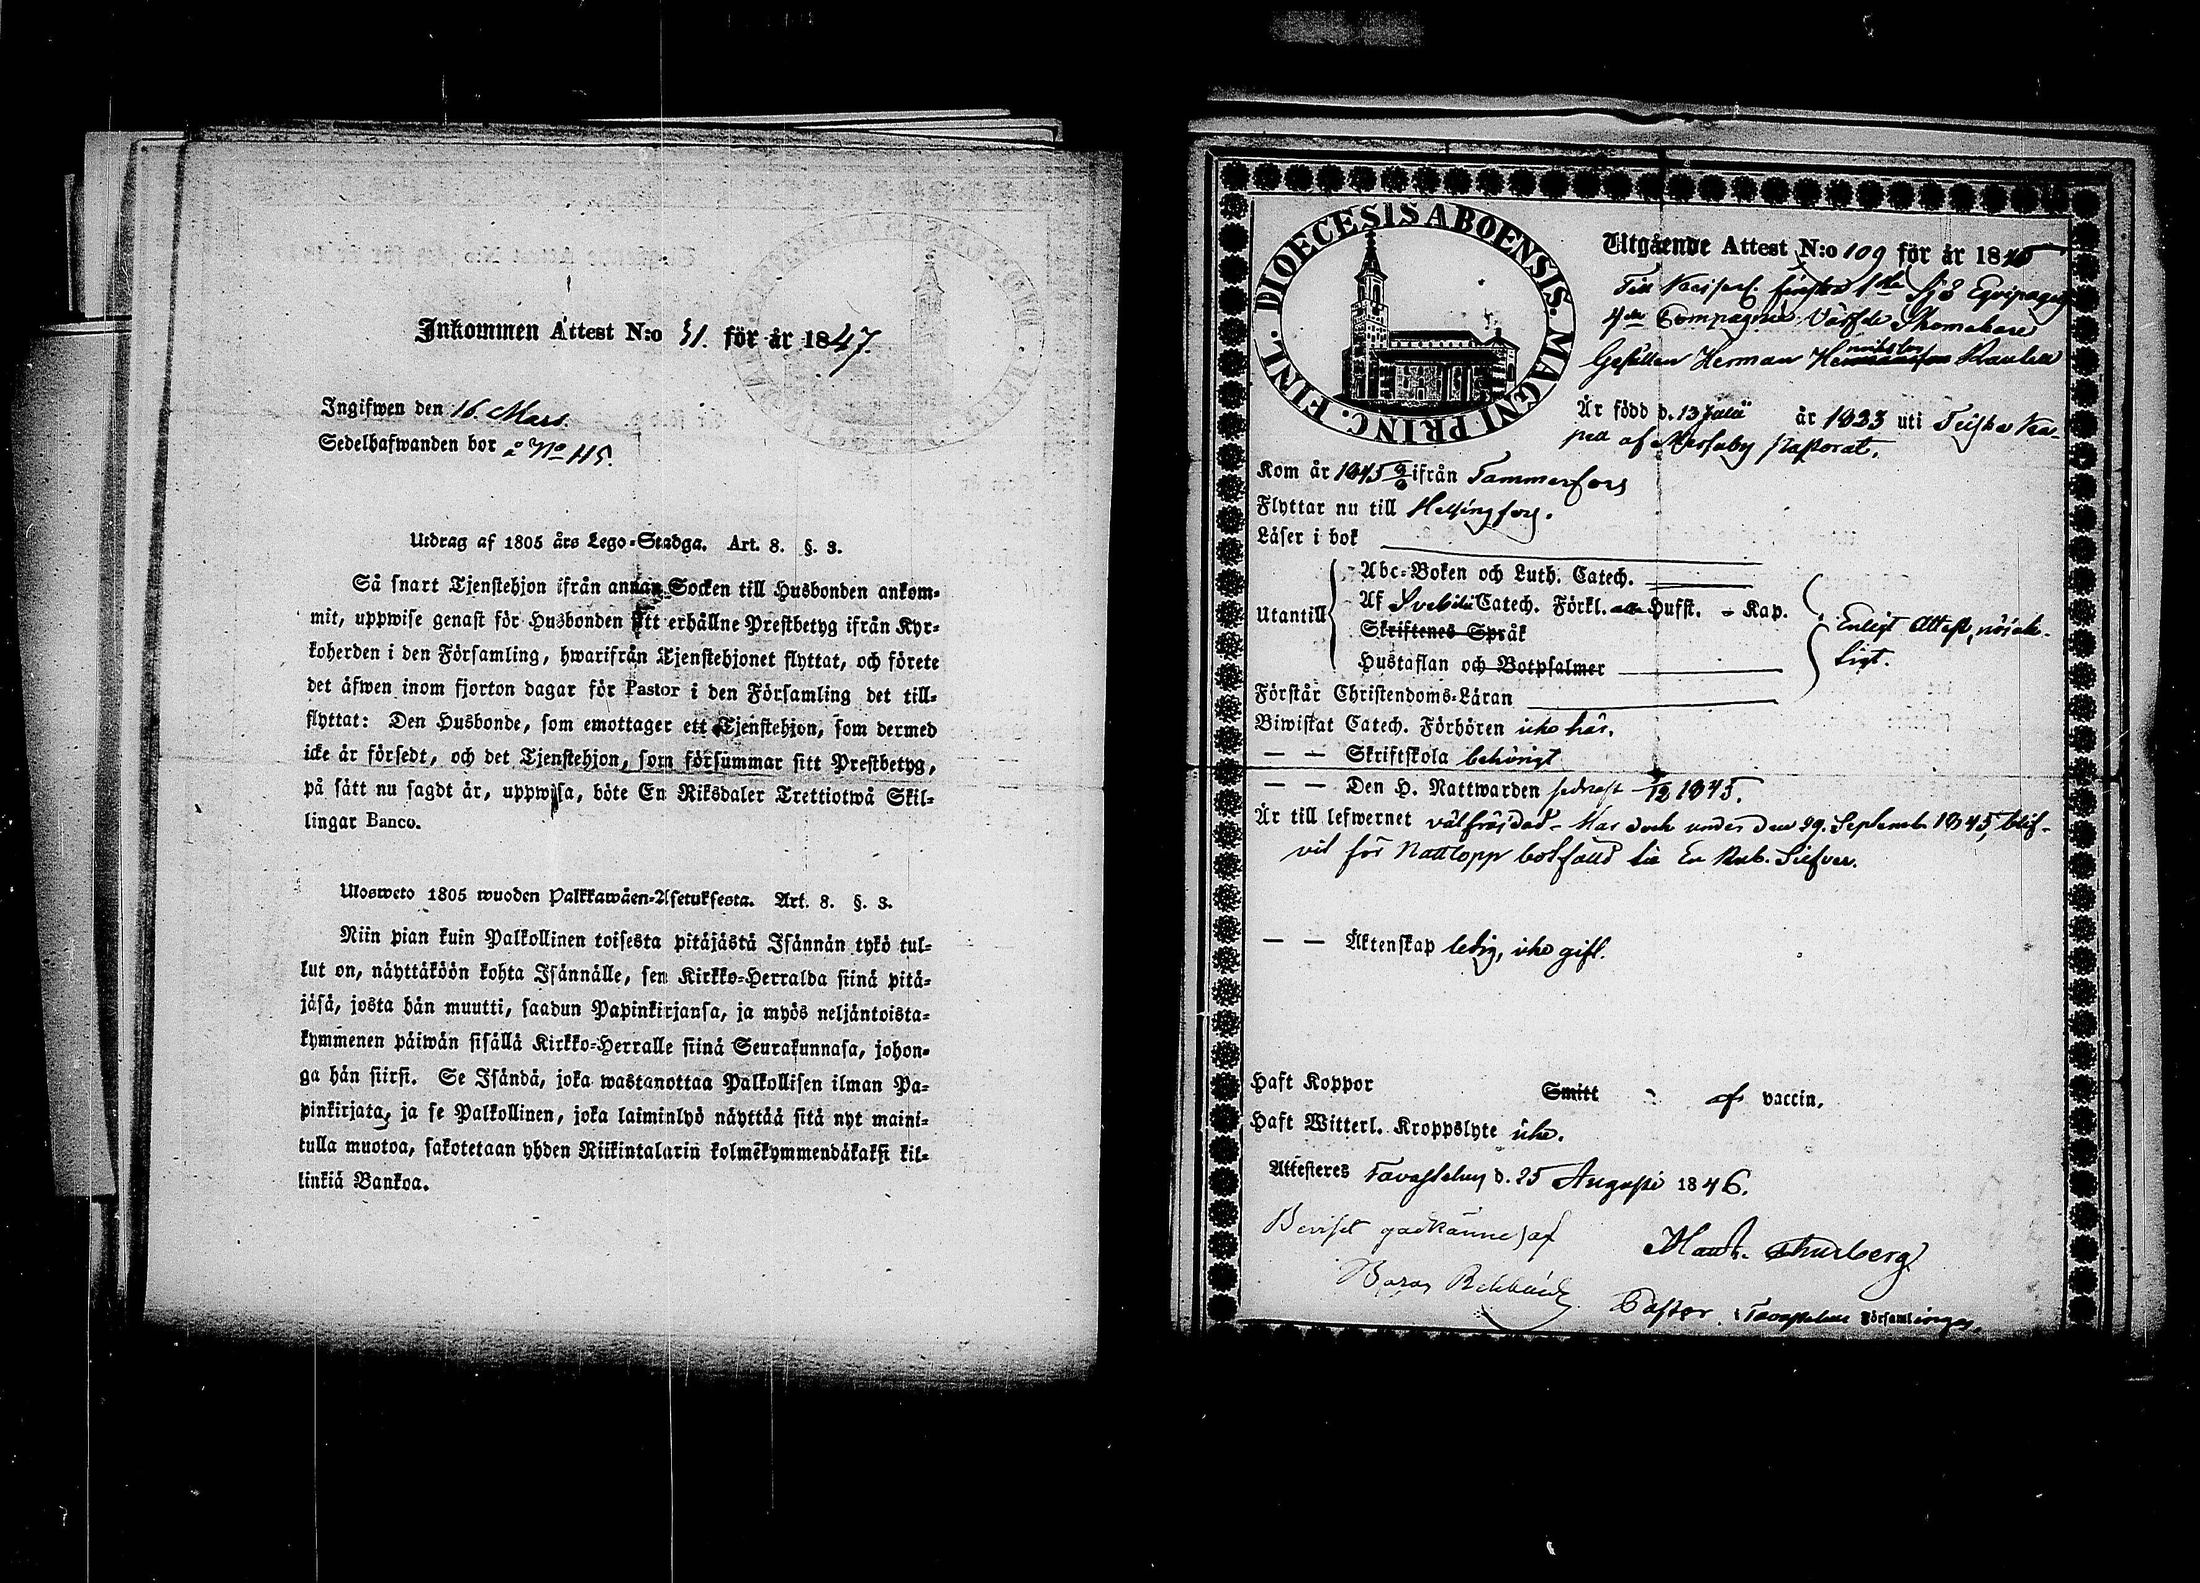 Inkommen Attest N:o 31. för år 1847.
Ingifwen den 16. Mars.
Sedelhafwanden bor å No 115.
Utdrag af 1805 års Lego-Stadga. Art. 8. §. 3.
Så snart Tjenstehjon ifrån annan Socken till Husbonden ankom-
mit, uppwise genast för Husbonden sitt erhållne Prestbetyg ifrån Kyr-
koherden i den Församling, hwarifrån Tjenstehjonet flyttat, och förete
det äfwen inom fjorton dagar för Pastor i den Församling det till-
flyttat: Den Husbonde, som emottager ett Tjenstehjon, som dermed
icke är försedt, och det Tjenstehjon, som försummar sitt Prestbetyg,
på sätt nu sagdt är, uppwisa, böte En Riksdaler Trettiotwå Skil-
lingar Banco.
Ulosweto 1805 wuoden Palkkawäen-Asetuksesta. Art. 8. §. 3.
Niin pian kuin Palkollinen toisesta pitäjästä Isännän tykö tul-
lut on, näyttäköön kohta Isännälle, sen Kirkko-Herralda siinä pitä-
jäsä, josta hän muutti, saadun Papinkirjansa, ja myös neljäntoista-
kymmenen päiwän sisällä Kirkko-Herralle siinä Seurakunnasa, johon-
ga hän siirsi. Se Isändä, joka wastanottaa Palkollisen ilman Pa-
pinkirjata, ja se Palkollinen, joka laiminlyö näyttää sitä nyt maini-
tulla muotoa, sakotetaan yhden Riikintalarin kolmekymmendäkaksi kil-
linkiä Bankoa.
DIOECESIS ABOENSIS. MAGNI PRINC. FINL.
Utgående Attest N:o 109 för år 1846
Till Keiserl. finska 1sta Sjö Equipaget
4de Compagnie Värfde Skomakare
Gesällen Herman Rautell
Är född d. 13 Julii år 1823 uti Teisko Ka-
pell af Messuby Pastorat.
Kom år 1845 ifrån Tammerfors
Flyttar nu till Helsingfors.
Läser i bok
Abc-Boken och Luth. Catech.
Utantill Af Svebilii Catech. Förkl. Husst. - Kap.
Enligt Attest, nöjak-
Skriftenes Språk
ligt.
Hustaflan och Botpsalmer
Förstår Christendoms-Läran
Biwistat Catech. Förhören icke här.
— — Skriftskola behörigt
— — Den H. Nattwarden sednast 1845.
Är till lefwernet välfräjdad - Har dock under den 29. Septemb. 1845, blif-
vit för Nattlopp botfälld till En Rub. Silfver.
— — Äktenskap ledig, icke gift.
Haft Koppor Smitt af vaccin.
Haft Witterl. Kroppslyte icke.
Attesteres Tavastehus d. 25 Augusti 1846.
Beviset godkännes af
Pastor i Tavastehus Församlingar.